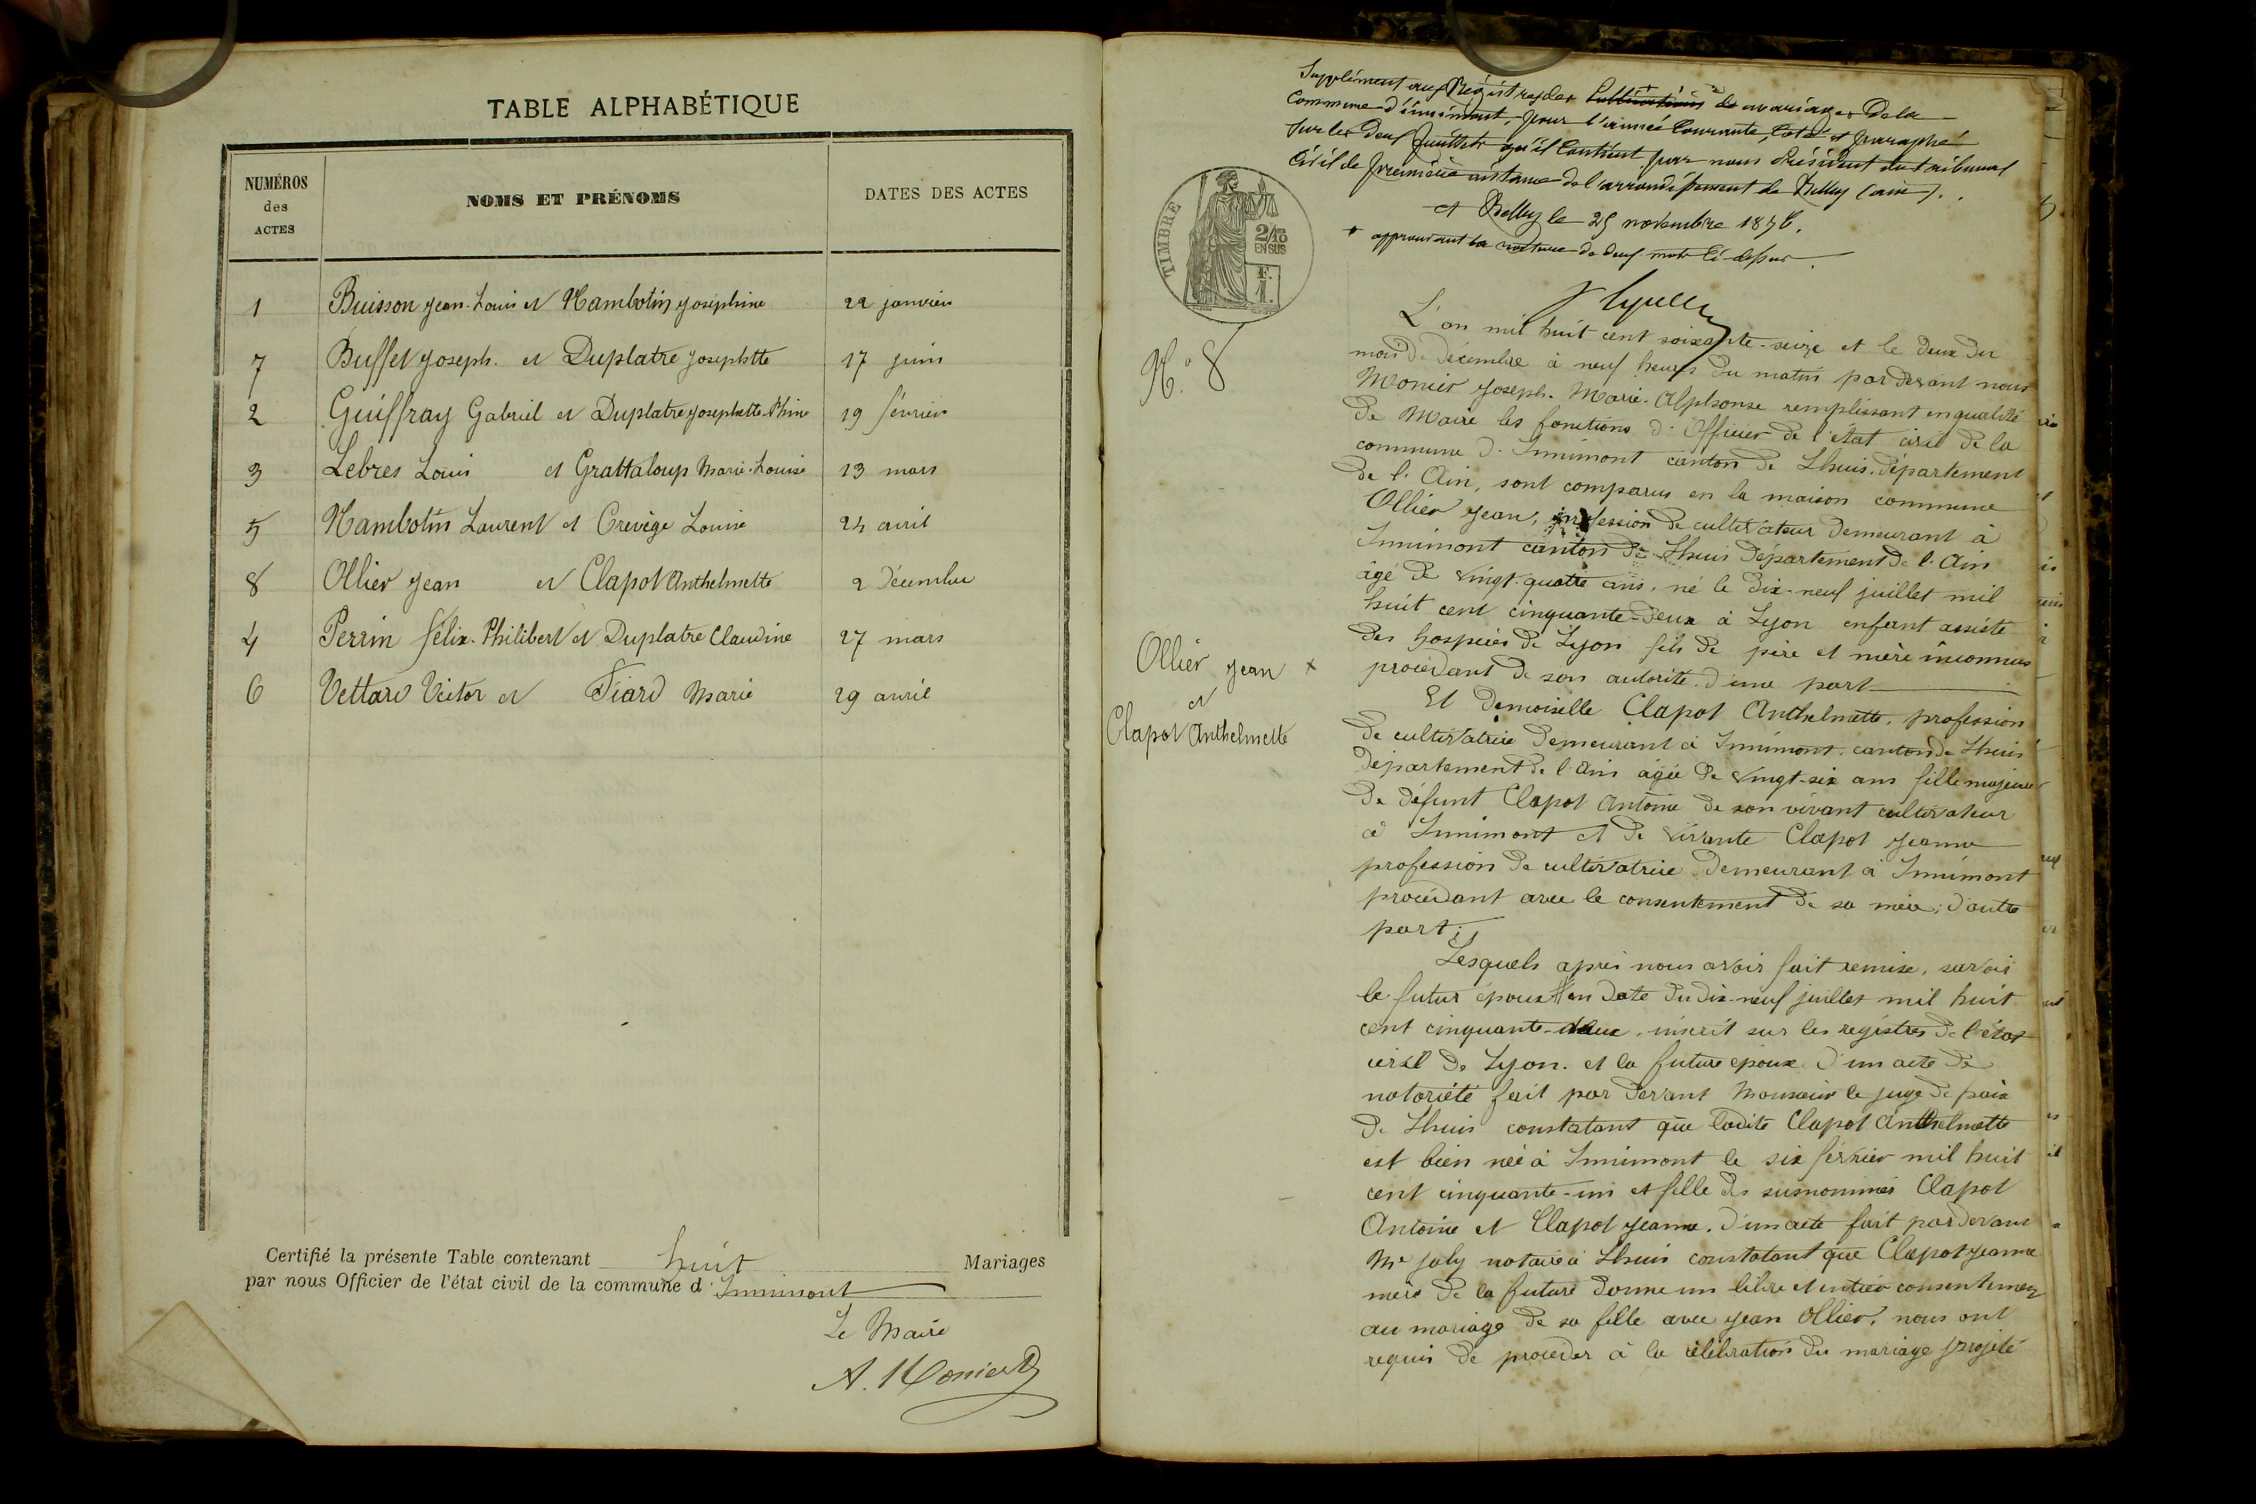 TABLE ALPHABÉTIQUE
NUMÉROS des ACTES
NOMS ET PRÉNOMS
DATES DES ACTES
1 Buisson Jean-Louis et Hambotin Joséphine 22 janvier
7 Buffet Joseph. et Duplatre Josephtte 17 juin
2 Guiffray Gabriel et Duplatre Josephette-Phine 19 février
3 Lebres Louis et Grattaloup Marie-Louise 13 mars
5 Hambotin Laurent et Crevège Louise 24 avril
8 Ollier Jean et Clapot Anthelmette 2 Décembre
4 Perrin félix-Philibert et Duplatre Claudine 27 mars
6 Vettard Victor et Fiard Marie 29 avril
Certifié la présente Table contenant huit Mariages
par nous Officier de l'état civil de la commune d'Innimont
Le Maire
A. Monier
Supplément aux Régistres des Publications de mariages De la
Commune d'innimont, pour l'année Courante, Coté et paraphé
sur les deux feuillets qu'il Contient par nous Président du tribunal
Civil de première instance de l'arrondissement de Belley (ain).
à Belley le 25 novembre 1876.
+ approuvant la rature de deux mots ci-dessus.
TIMBRE
2/10
EN SUS
1 F.
N.° 8
Ollier Jean +
et
Clapot Anthelmette
L'an mil huit cent soixante-seize et le deux du
mois de décembre à neuf heures du matin par devant nous
Monier Joseph-Marie-Alphonse remplissant en qualité
de Maire les fonctions d'Officier de l'état civil de la
commune d'Innimont canton de Lhuis département
de l'Ain, sont comparus en la maison commune
Ollier Jean, profession de cultivateur demeurant à
Innimont canton de Lhuis département de l'Ain
âgé de vingt-quatre ans, né le dix-neuf juillet mil
huit cent cinquante-deux à Lyon enfant assisté
des hospices de Lyon fils de père et mère inconnus
procédant de son autorité d'une part
Et demoiselle Clapot Anthelmette, profession
de cultivatrice demeurant à Innimont canton de Lhuis
département de l'Ain âgée de vingt-six ans fille majeure
de défunt Clapot Antoine de son vivant cultivateur
à Innimont et de vivante Clapot Jeanne
profession de cultivatrice demeurant à Innimont
procédant avec le consentement de sa mère; d'autre
part;
Lesquels après nous avoir fait remise, savoir
le futur époux en date du dix-neuf juillet mil huit
cent cinquante-deux, inscrit sur les registres de l'état
civil de Lyon. et la future epoux d'un acte de
notoriété fait par devant Monsieur le juge de paix
de Lhuis constatant que ladite Clapot Anthelmette
est bien née à Innimont le six février mil huit
cent cinquante-un et fille des susnommés Clapot
Antoine et Clapot Jeanne. d'un acte fait par devant
Me Joly notaire à Lhuis constatant que Clapot Jeanne
mère de la future donne un libre et entier consentement
au mariage de sa fille avec Jean Ollier, nous ont
requis de procéder à la célébration du mariage projeté